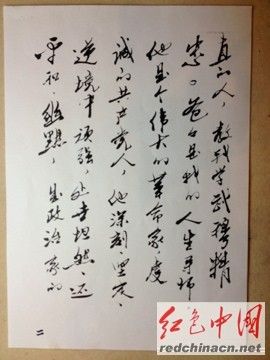 真的人,教我学武精
忠。爸爸是我的人生导师
他是个伟大的革命家,虔
诚的共产党人,他深刻、坚定、
逆境中顽强,处事坦然、还
平和、幽默,是政治家的
二
红色中国
redchinacn.net